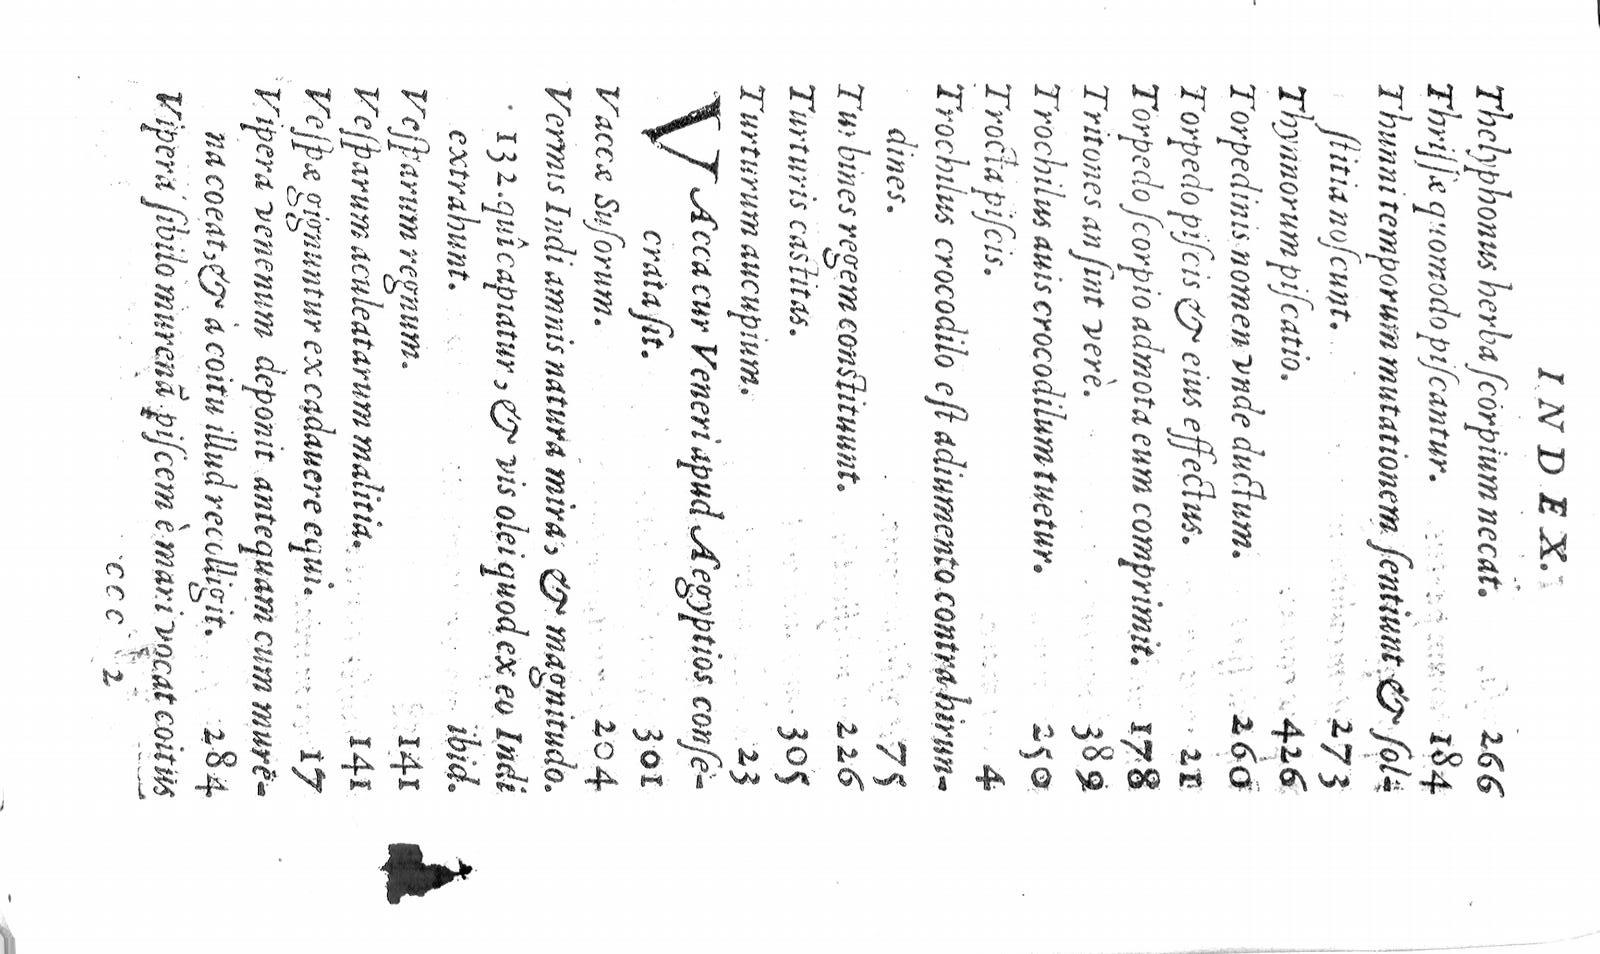 INDEX.
Thelyphonus herba ſcorpium necat. 266
Thriſſæ quomodo piſcantur. 184
Thunni temporum mutationem ſentiunt & ſol-
ſtitia noſcunt. 273
Thynnorum piſcatio. 426
Torpedinis nomen vnde ductum. 260
Torpedo piſcis & eius effectus. 21
Torpedo ſcorpio admota eum comprimit. 178
Tritones an ſint verè. 389
Trochilus auis crocodilum tuetur. 250
Trocta piſcis. 4
Trochilus crocodilo eſt adiumento contra hirun-
dines. 75
Turbines regem conſtituunt. 226
Turturis caſtitas. 305
Turturum aucupium. 23
VAcca cur Veneri apud Aegyptios conſe-
crata ſit. 301
Vaccæ Suſorum. 204
Vermis Indi amnis natura mira, & magnitudo.
132. quî capiatur, & vis olei quod ex eo Indi
extrahunt. ibid.
Veſparum regnum. 141
Veſparum aculeatarum malitia. 141
Veſpæ gignuntur ex cadauere equi. 17
Vipera venenum deponit antequam cum murē-
na coeat, & à coitu illud recolligit. 284
Vipera ſibilo murenā piſcem è mari vocat coitus
ccc 2